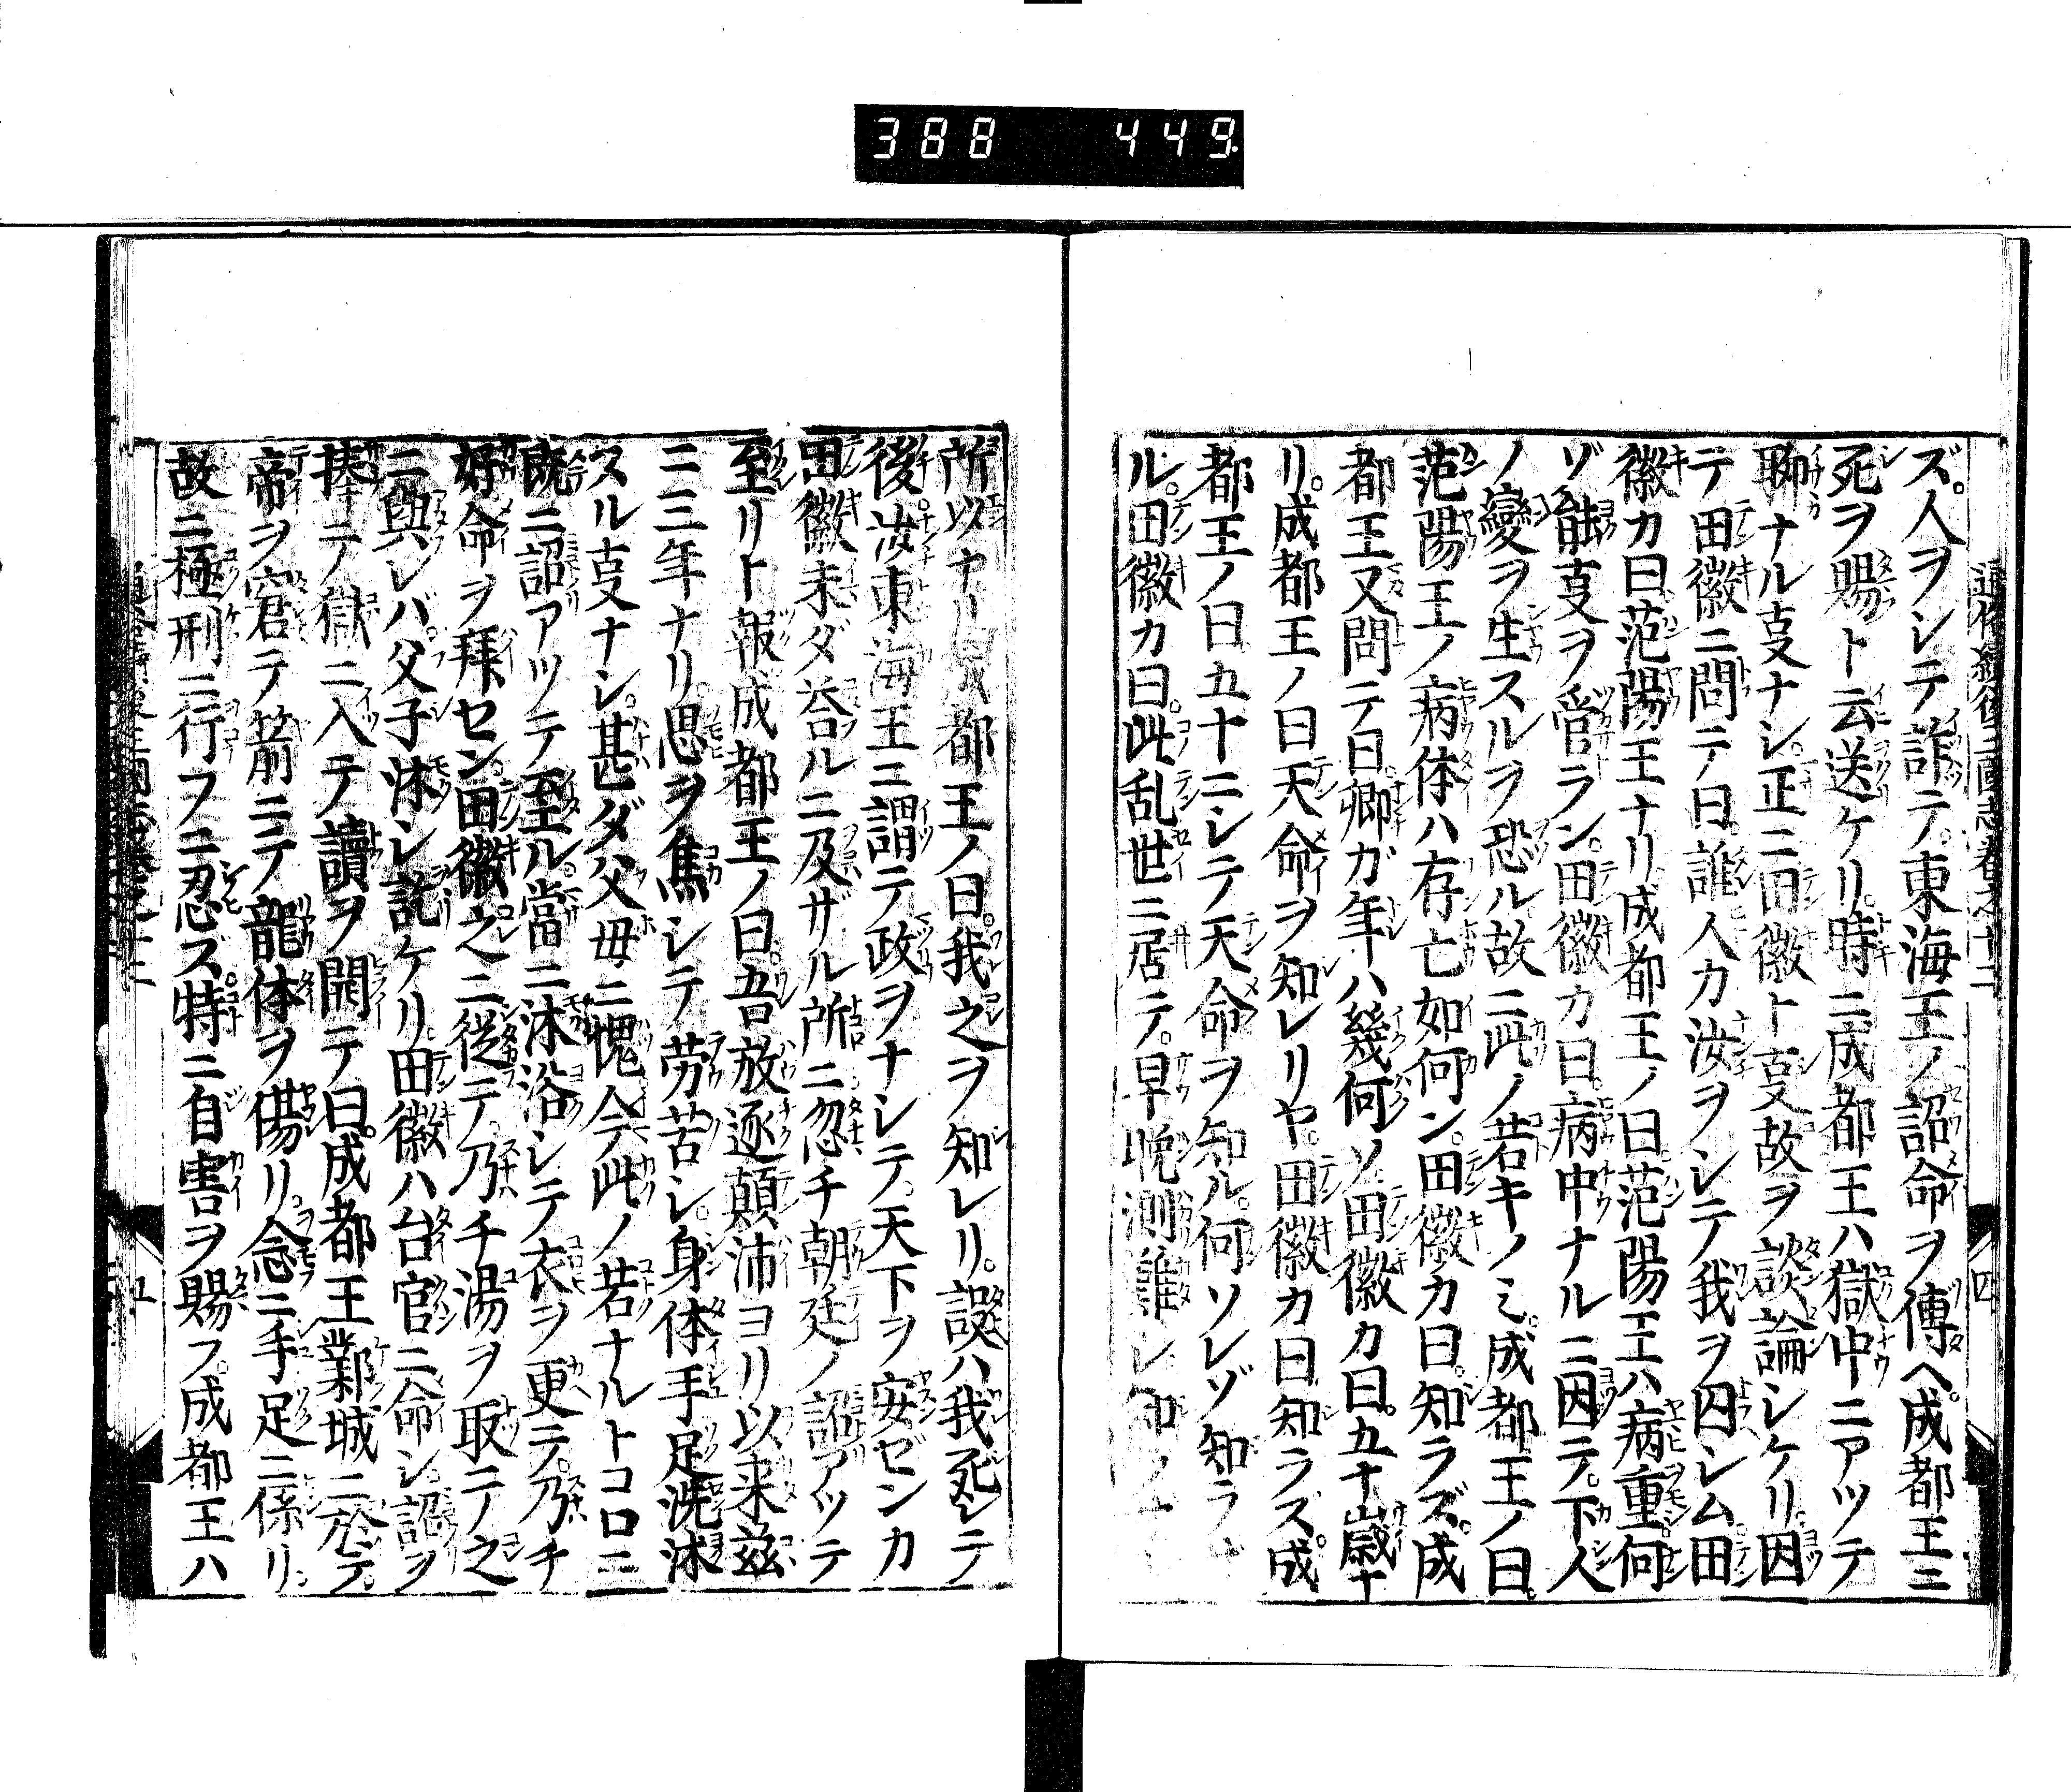 388 449
ズ。人ヲシテ詐テ。東海王ノ詔命ヲ傳ヘ。成都王ニ
死ヲ賜ト云送ケリ。時ニ成都王ハ獄中ニアツテ
聊ナル叓ナシ。正ニ田徽ト叓故ヲ談論シケリ。因
テ田徽ニ問テ曰。誰人カ汝ヲシテ我ヲ囚シム田
徽カ曰范陽王ナリ成都王ノ曰范陽王ハ病重。何
ゾ能叓ヲ管ラン。田徽カ曰。病中ナルニ因テ。下人
ノ變ヲ生スルヲ恐ル故ニ此ノ若キノミ。成都王ノ曰。
范陽王ノ病体ハ存亡如何ン。田徽カ曰。知ラズ。成
都王又問テ曰。卿ガ年ハ幾何ソ田徽カ曰。五十歳ナ
リ。成都王ノ曰天命ヲ知レリヤ。田徽カ曰知ラズ。成
都王ノ曰五十ニシテ天命ヲ知ル。何ソレゾ知ラ
ル。田徽カ曰。此乱世ニ居テ。早晩測難シ知
通俗續後三國志卷之十二 四
所以ヤ成都王ノ曰。我之ヲ知レリ。誤ハ我死シテ
後汝東海王ニ謂テ政ヲナシテ。天下ヲ安ゼンカ
田徽未ダ荅ルニ及ザル所ニ忽チ朝廷ノ詔アツテ
至リト報成都王ノ曰。吾放逐顛沛ヨリ以来茲
ニ三年ナリ思ヲ焦シテ労苦シ。身体手足洗沐
スル叓ナシ。甚ダ父母ニ愧今此ノ若ナルトコロニ
既ニ詔アツテ至ル。當ニ沐浴シテ衣ヲ更テ。乃チ
好命ヲ拜セン。田徽之ニ従テ。乃チ湯ヲ取テ之
ニ與レバ。父子沐シ訖ケリ。田徽ハ台官ニ命シ。詔ヲ
捧テ獄ニ入テ讀ヲ開テ曰。成都王鄴城ニ於テ。
帝ヲ窘テ箭ニテ龍体ヲ傷リ。念ニ手足ニ係リ
故ニ極刑ニ行フニ忍ズ。特ニ自害ヲ賜フ。成都王ハ